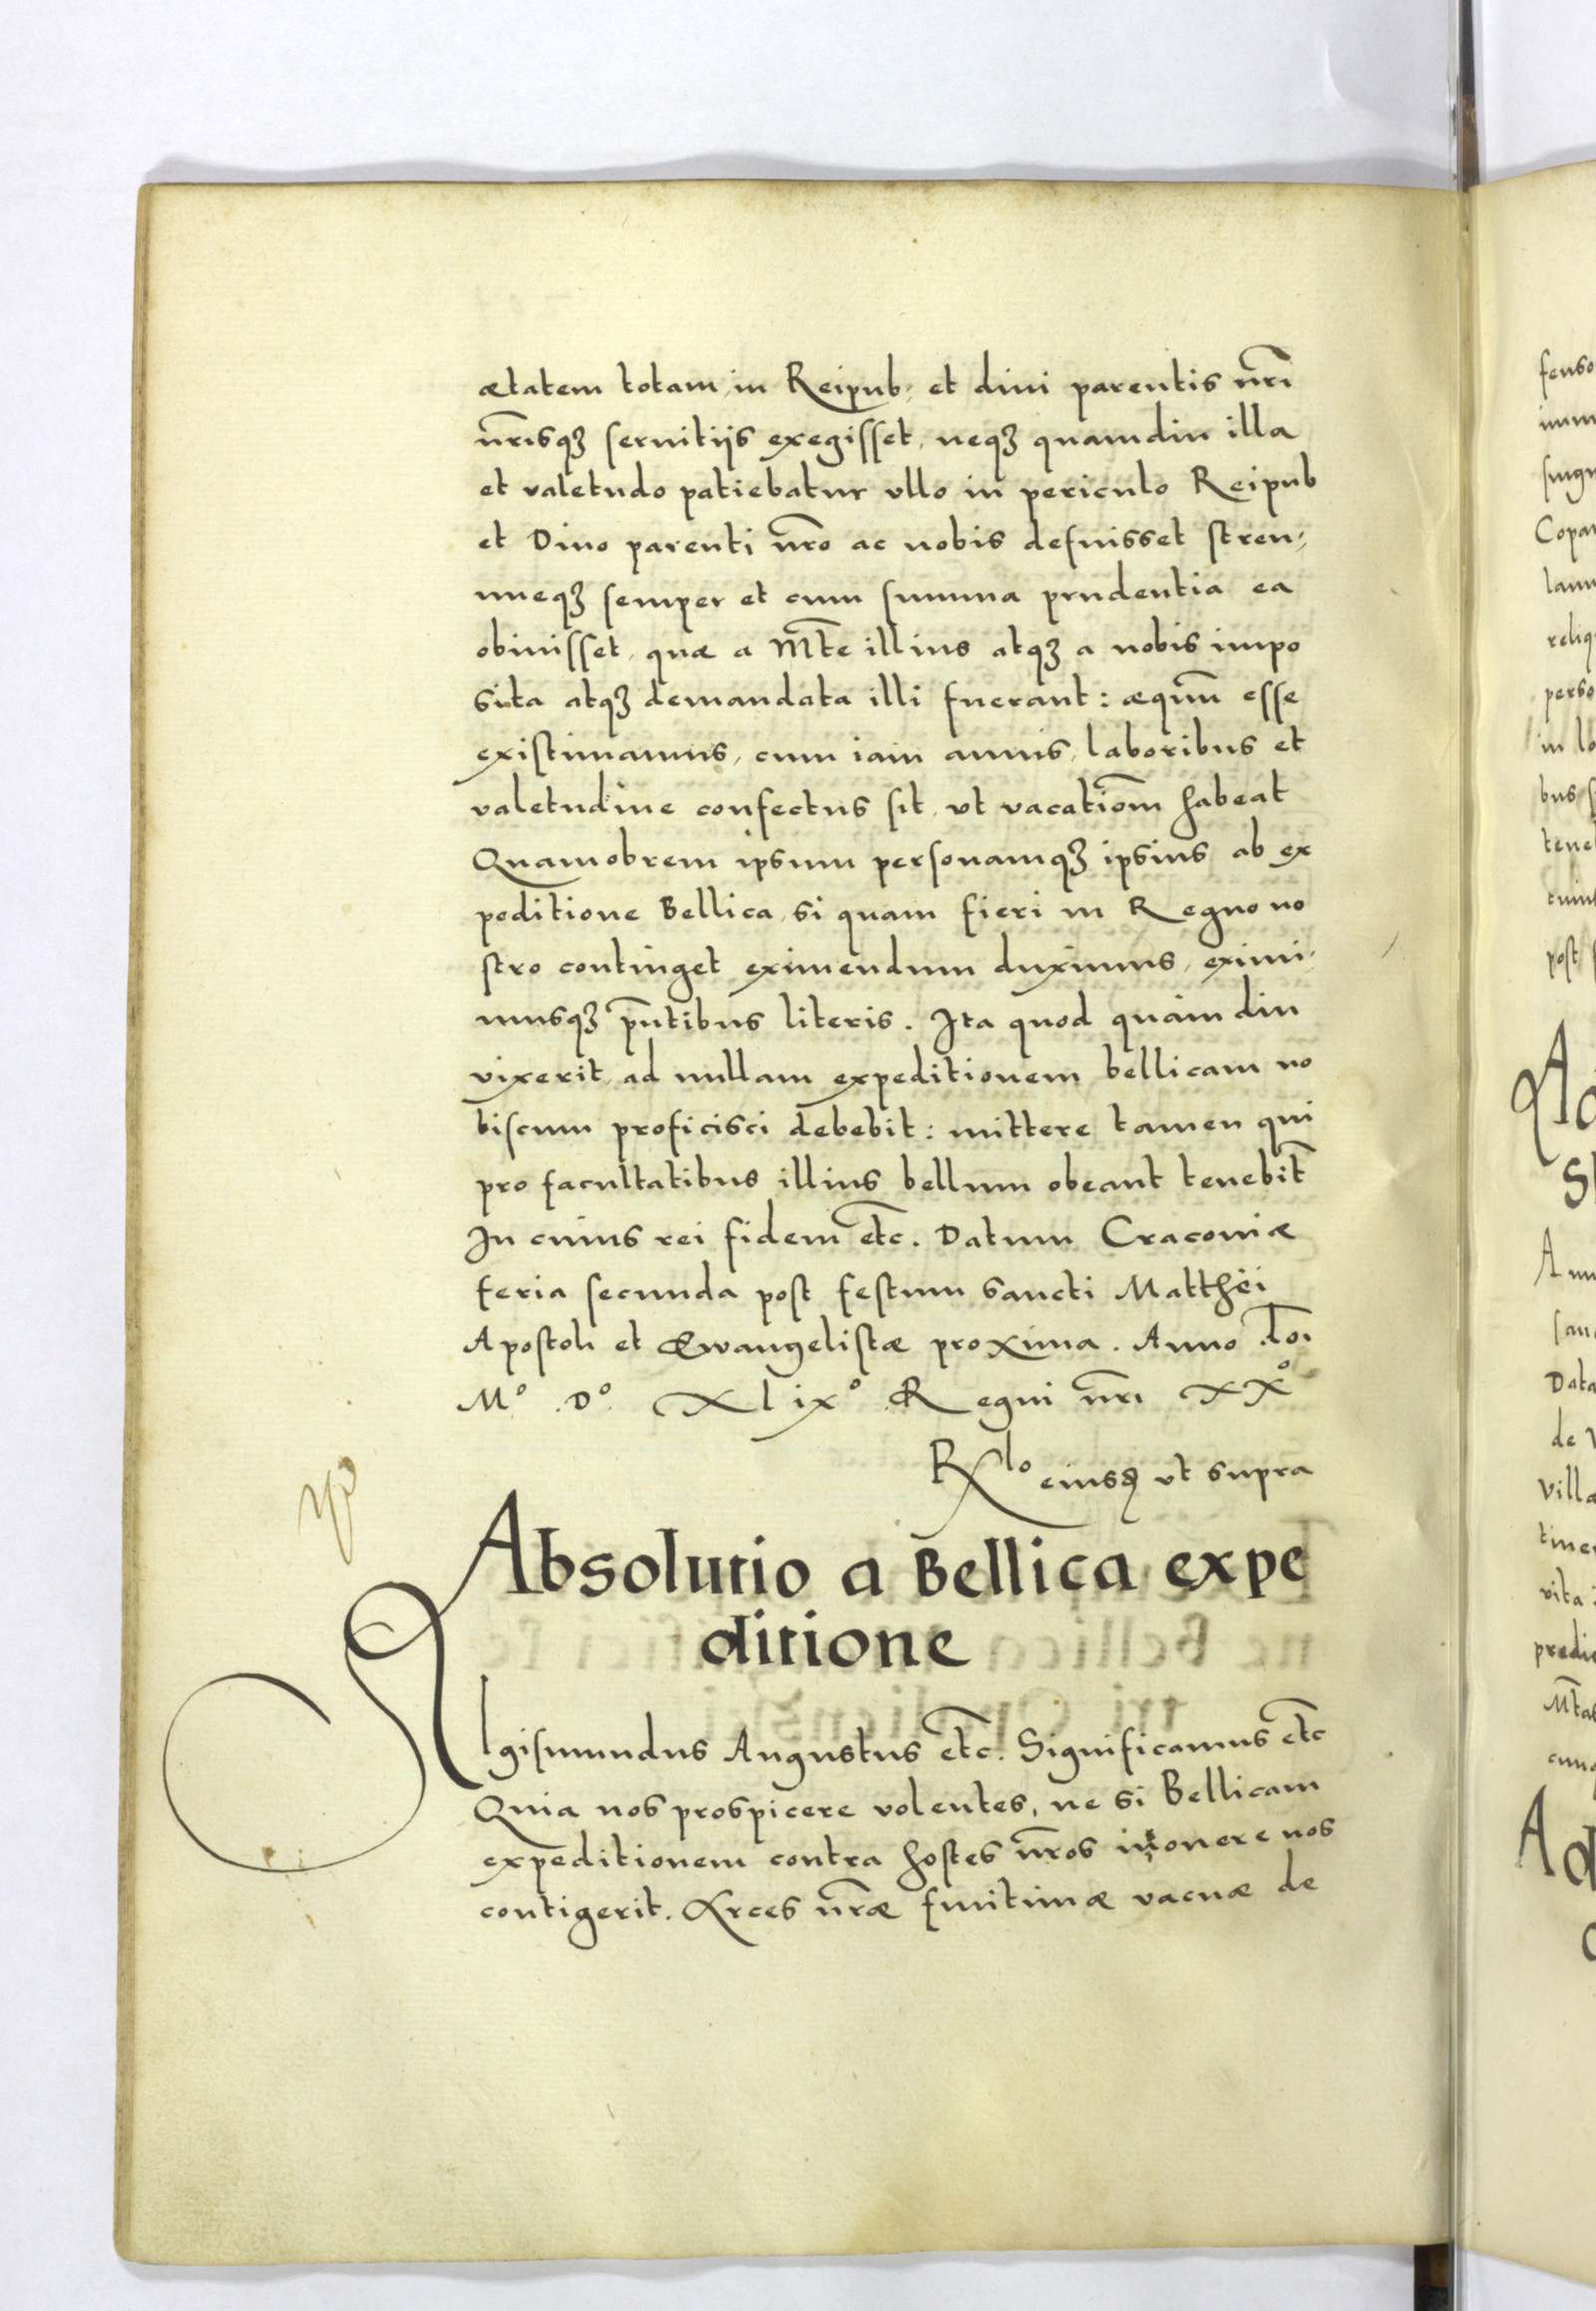 ætatem totam, in Reipub: et diui parentis nr̃i
nr̃isqꝫ seruitijs exegisset, neqꝫ quamdiu illa
et valetudo patiebatur vllo in periculo Reipub
et Diuo parenti nr̃o ac nobis defuisset stren:
nueqꝫ semper et cum summa prudentia ea
obiuisset, quæ a Mt̃e illius atqꝫ a nobis impo
sita atqꝫ demandata illi fuerant: æquũ esse
existimamus, cum iam annis, laboribus et
valetudine confectus sit, vt vacatiõm habeat
Quamobrem ipsum personamqꝫ ipsius ab ex
peditione Bellica, si quam fieri in Regno no
stro continget eximendum duximus, eximi,
musqꝫ pñtibus literis. Ita quod quamdiu
vixerit, ad nullam expeditionem bellicam no
biscum proficisci debebit: mittere tamen qui
pro facultatibus illius bellum obeant tenebit̃
In cuius rei fidem etc̃. Datum Cracouiæ
feria secunda post festum sancti Matthei
Apostoli et Ewangelistæ proxima. Anno
Mº. Dº. Xlixº Regni nr̃i XXº
Rlº eiusd vt supra
Absolutio a Bellica expe
ditione
Sigismundus Augustus etc̃. Significamus etc̃
Quia nos prospicere volentes, ne si Bellicam
expeditionem contra hostes nr̃os mouere nos
contigerit. Arces nr̃æ finitimæ vacuæ de